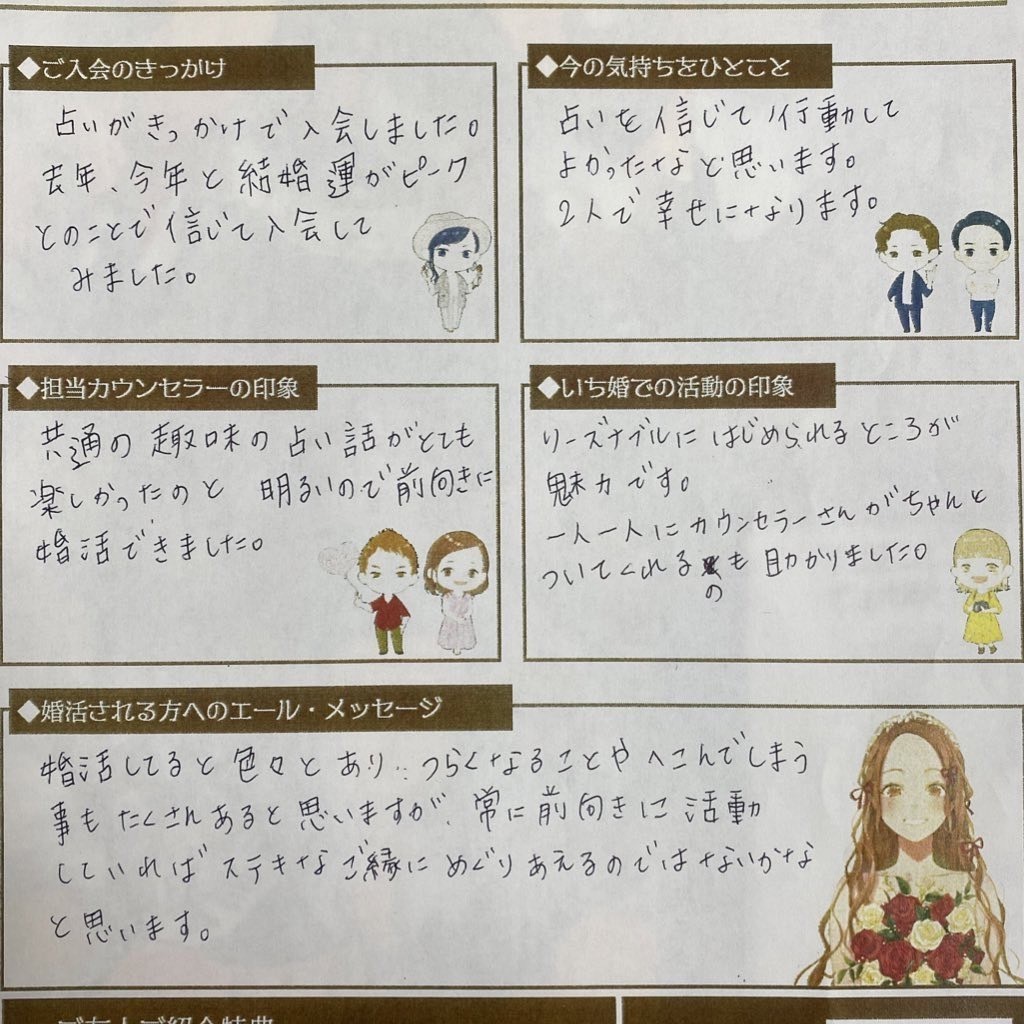 ◆ご入会のきっかけ
占いがきっかけで入会しました。
去年、今年と結婚運がピーク
とのことで信じて入会して
みました。
◆今の気持ちをひとこと
占いを信じて行動して
よかったなと思います。
2人で幸せになります。
◆担当カウンセラーの印象
共通の趣味の占い話がとても
楽しかったのと 明るいので前向きに
婚活できました。
◆いち婚での活動の印象
リーズナブルにはじめられるところが
魅力です。
一人一人にカウンセラーさんがちゃんと
ついてくれるのも助かりました。
◆婚活される方へのエール・メッセージ
婚活してると色々とあり、つらくなることやへこんでしまう
事もたくさんあると思いますが、常に前向きに活動
していればステキなご縁にめぐりあえるのではないかな
と思います。
ご友人ご紹介特典